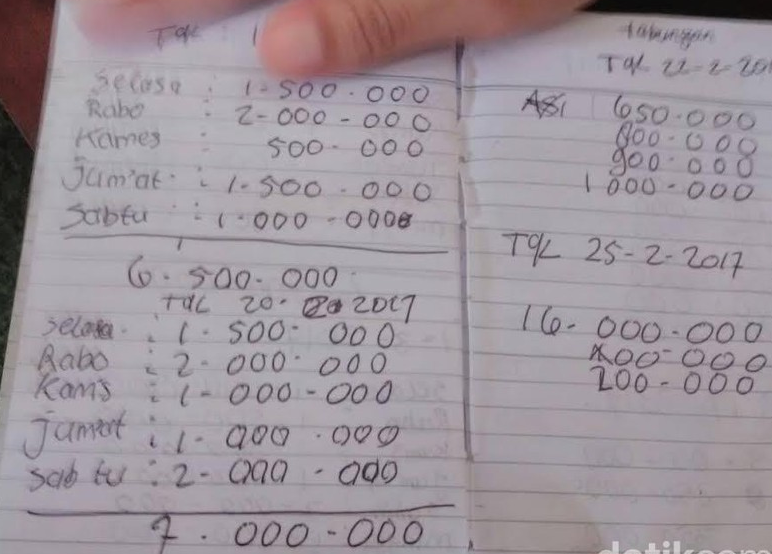 Tgl : 1
Selasa : 1-500.000
Rabo : 2-000-000
Kames : 500-000
Jum'at : 1-500.000
Sabtu : 1.000-000
6.500-000
TGL 20. 2017
Selasa : 1.500.000
Rabo : 2-000.000
Kams : 1-000-000
Jumat : 1-000.000
Sabtu : 2-000-000
7.000-000
tabungan
TGL 22-2-201
650.000
800.000
900.000
1 000-000
TGL 25-2-2017
16-000-000
200-000
detikcom